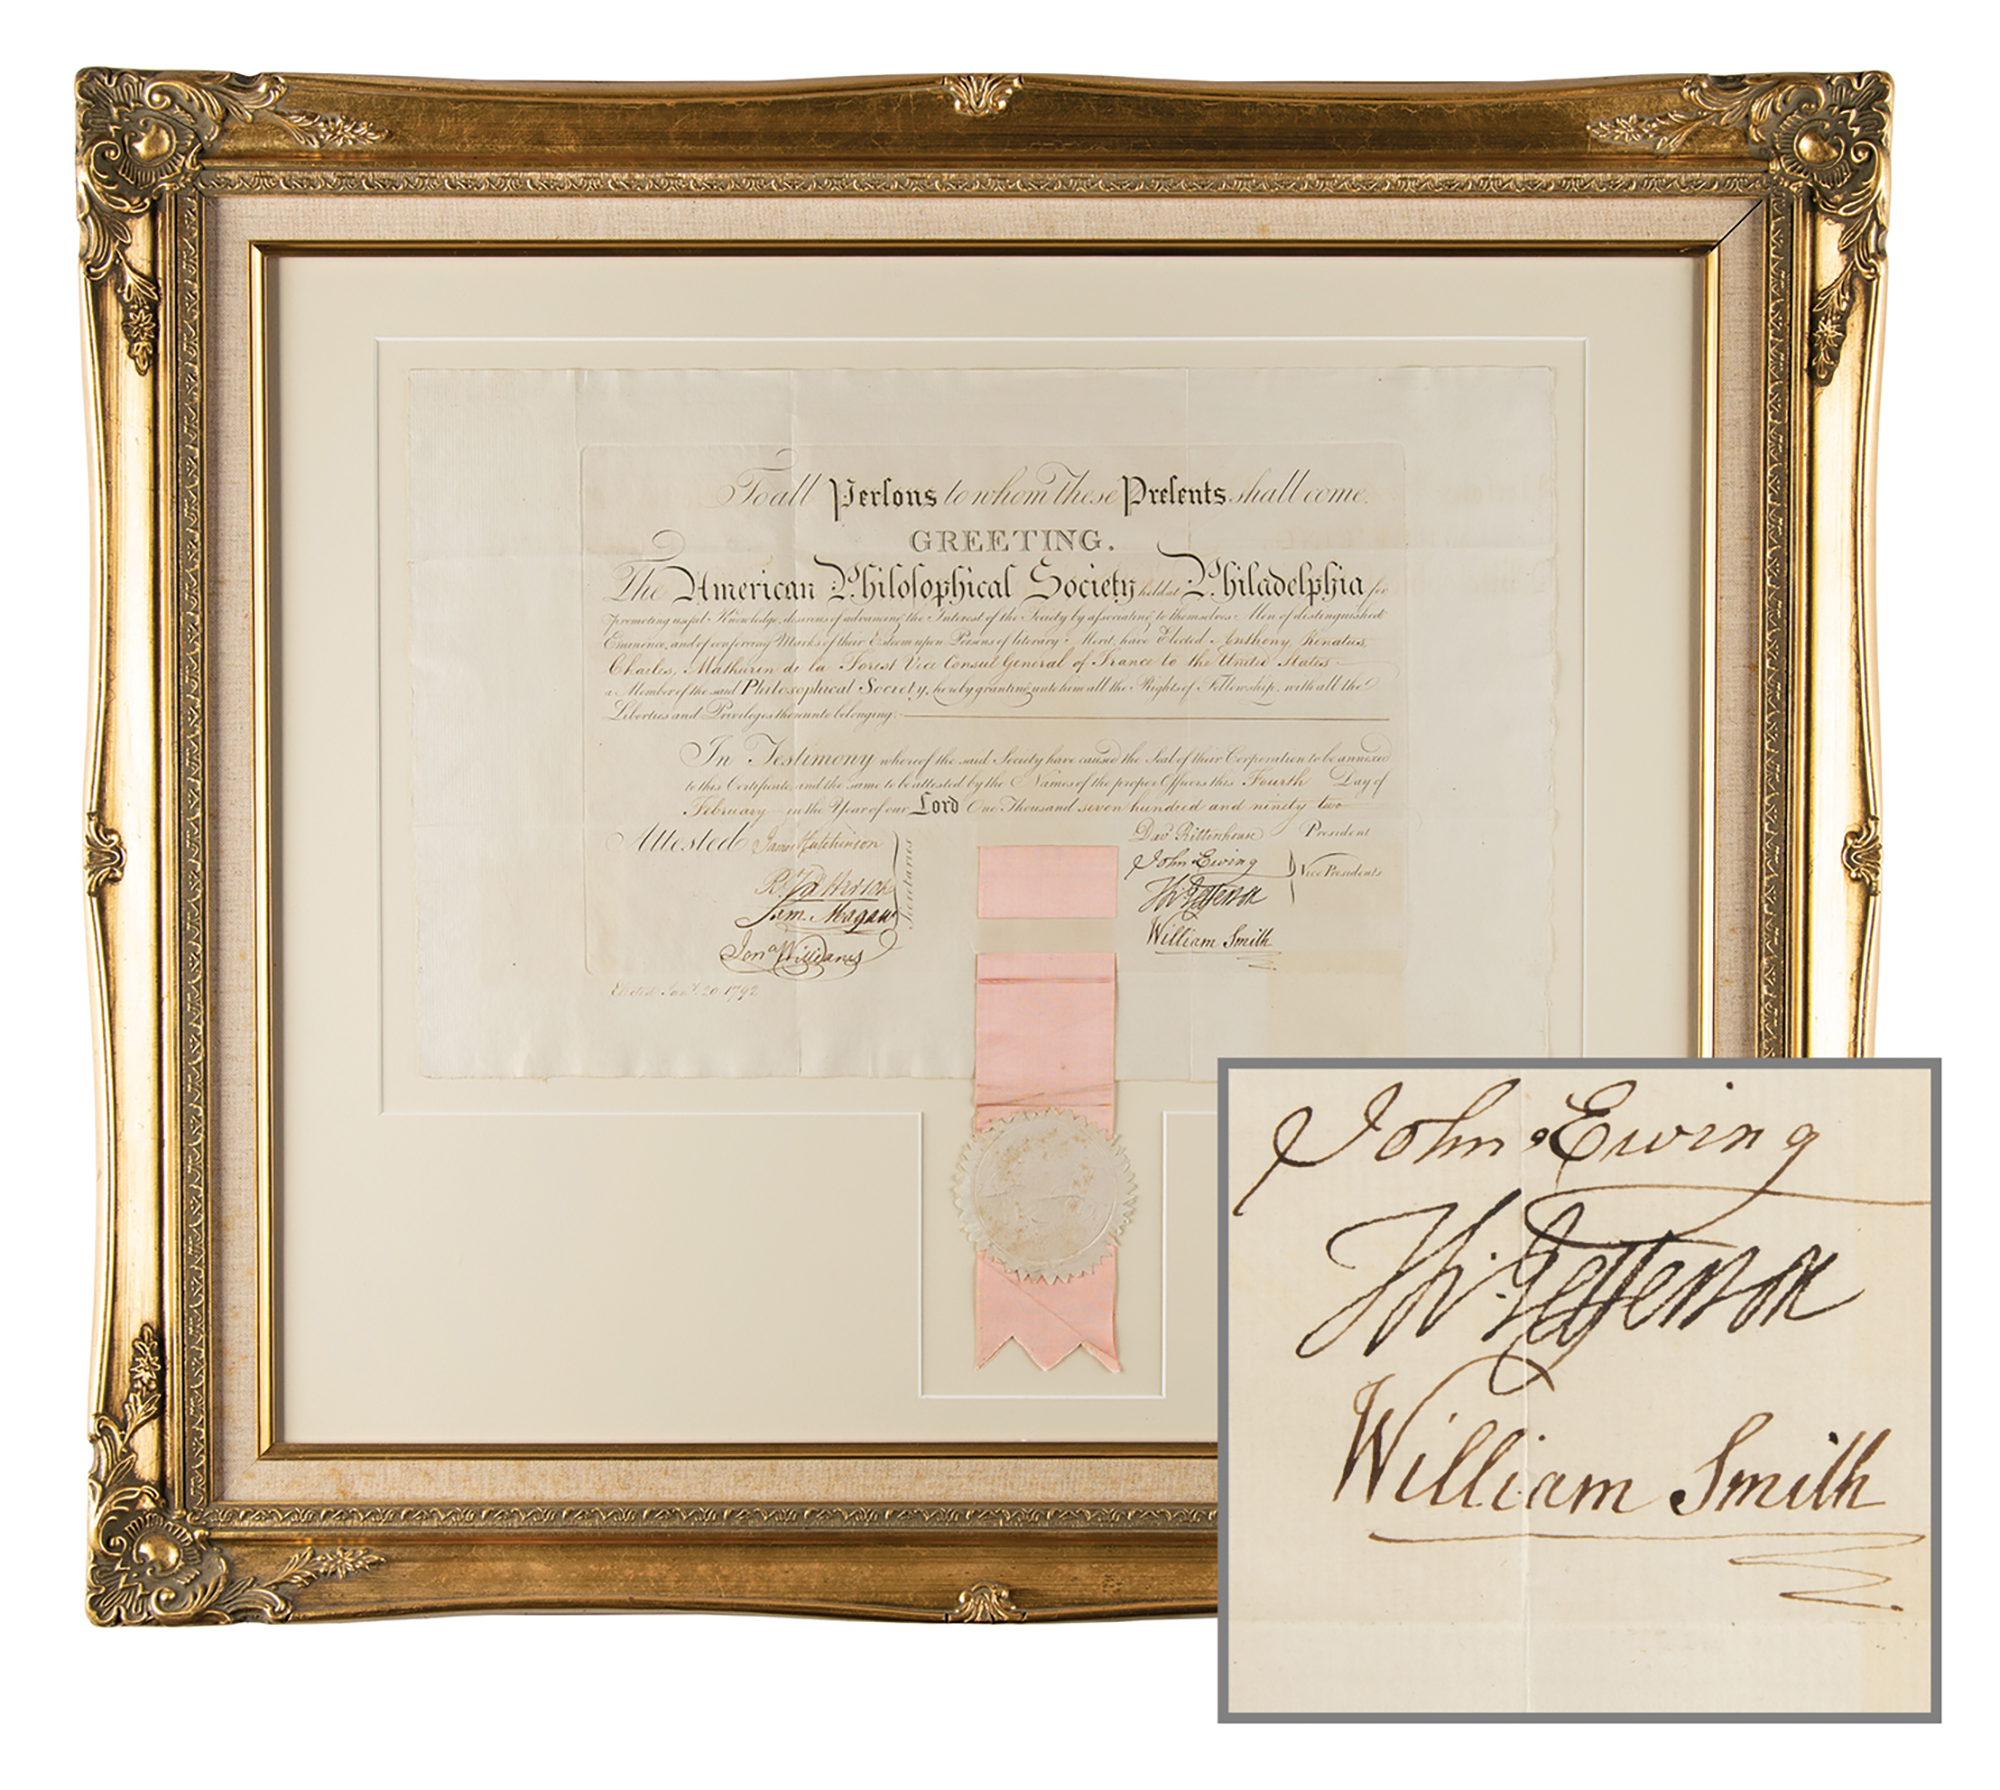 To all Perſons to whom these Preſents shall come.
GREETING.
The American Philoſophical Society held at Philadelphia for
promoting useful Knowledge, desirous of advancing the Interest of the Society by aſsociating to themselves Men of distinguished
Eminence, and of conferring Marks of their Esteem upon Persons of literary Merit, have Elected Anthony, Rhenatus,
Charles, Mathurin de la Forest Vice Consul General of France to the United States
a Member of the said Philosophical Society, hereby granting unto him all the Rights of Fellowship, with all the
Liberties and Privileges thereunto belonging.
In Testimony whereof the said Society have caused the Seal of their Corporation to be annexed
to this Certificate, and the same to be attested by the Names of the proper Officers this Fourth Day of
February in the Year of our Lord One Thousand seven hundred and ninety two
Attested James Hutchinson
R. Patterson
Sam. Magaw
Secretaries
Jona Williams
Elected Jany. 20. 1792
Davd. Rittenhouse President
John Ewing
Th: Jefferson
Vice Presidents
William Smith
John Ewing
Th: Jefferson
William Smith